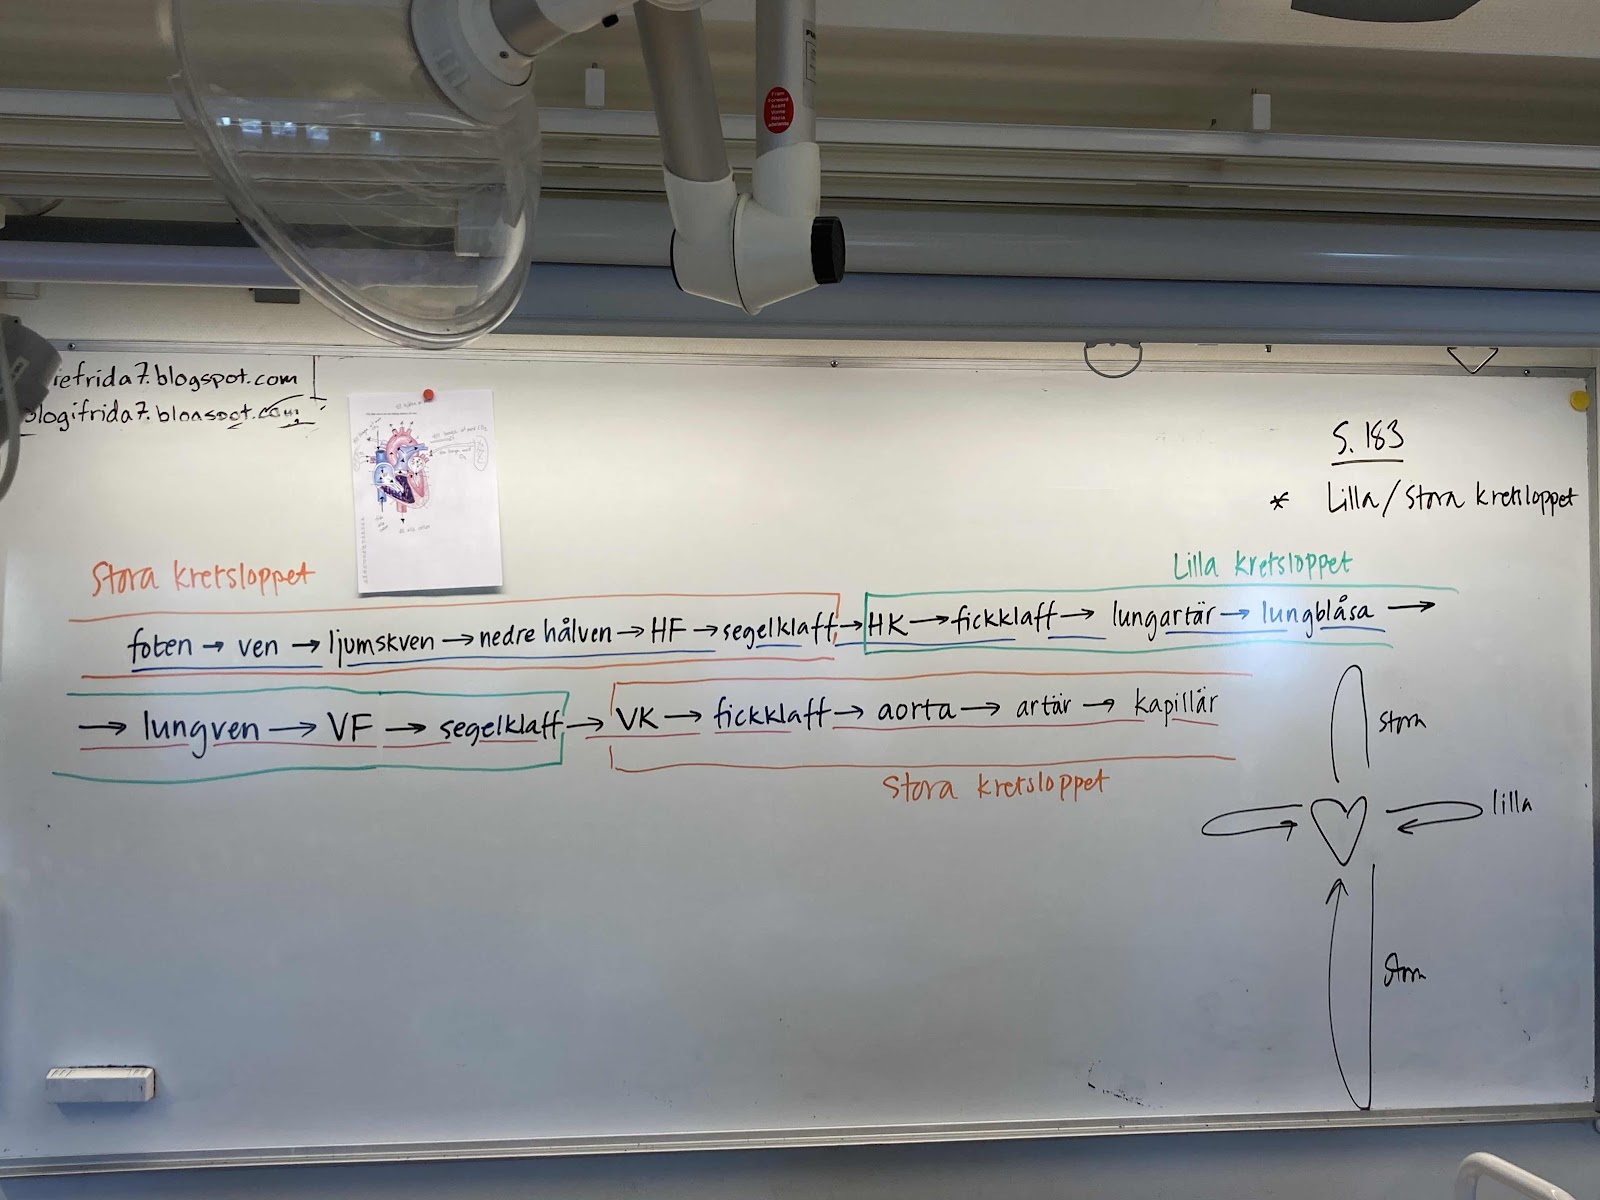 iefrida7.blogspot.com
blogifrida7.blogspot.com
S. 183
* Lilla/Stora kretsloppet
Stora kretsloppet
Lilla kretsloppet
foten → ven → ljumskven → nedre hålven → HF → segelklaff → HK → fickklaff → lungartär → lungblåsa →
→ lungven → VF → segelklaff → VK → fickklaff → aorta → artär → kapillär
Stora kretsloppet
stora
lilla
stora